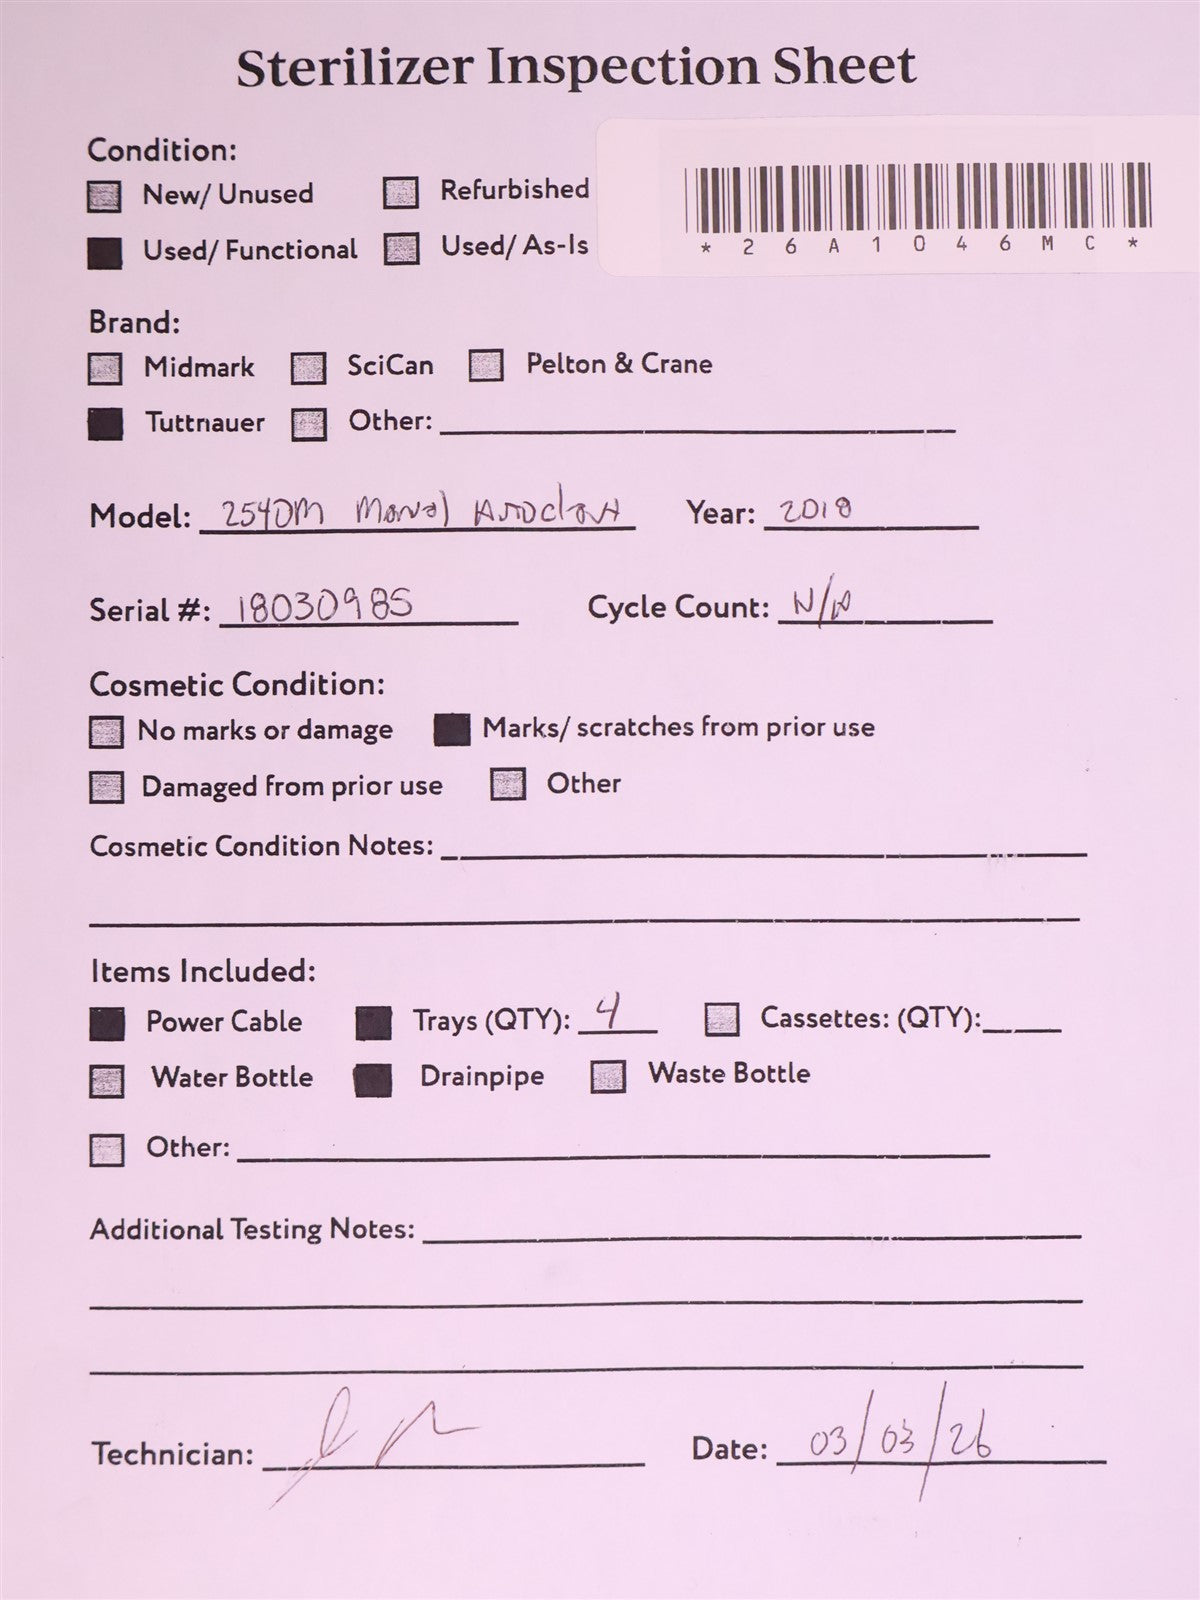 Sterilizer Inspection Sheet
Condition:
New/ Unused Refurbished
Used/ Functional Used/ As-Is
*26A1046MC*
Brand:
Midmark SciCan Pelton & Crane
Tuttnauer Other:
Model: 2540M Manual Autoclave Year: 2018
Serial #: 18030985 Cycle Count: N/A
Cosmetic Condition:
No marks or damage Marks/ scratches from prior use
Damaged from prior use Other
Cosmetic Condition Notes:
Items Included:
Power Cable Trays (QTY): 4 Cassettes: (QTY):
Water Bottle Drainpipe Waste Bottle
Other:
Additional Testing Notes:
Technician: Date: 03/03/26